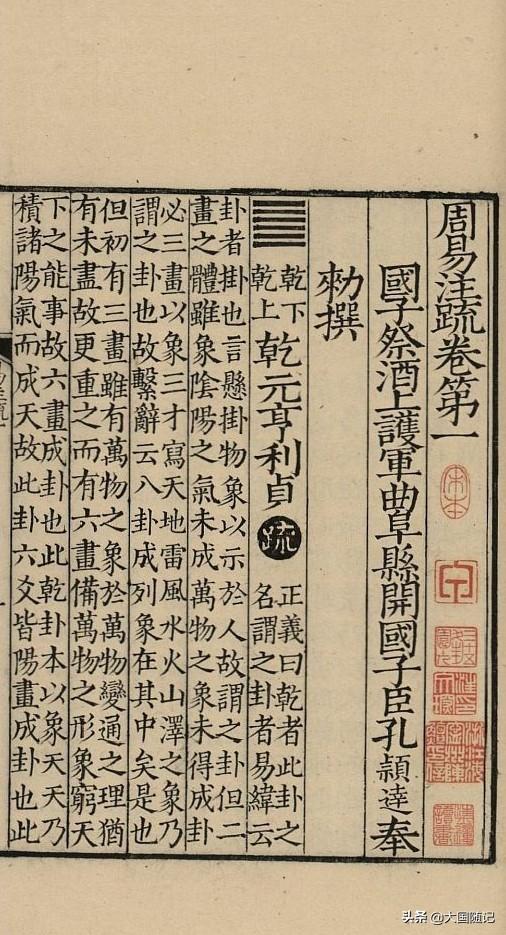 周易注疏卷第一
國子祭酒上護軍曲阜縣開國子臣孔穎達奉
勑撰
乾下
乾上
乾元亨利貞
疏
正義曰乾者此卦之
名謂之卦者易緯云
卦者掛也言懸掛物象以示於人故謂之卦但二
畫之體雖象陰陽之氣未成萬物之象未得成卦
必三畫以象三才寫天地雷風水火山澤之象乃
謂之卦也故繫辭云八卦成列象在其中矣是也
但初有三畫雖有萬物之象於萬物變通之理猶
有未盡故更重之而有六畫備萬物之形象窮天
下之能事故六畫成卦也此乾卦本以象天天乃
積諸陽氣而成天故此卦六爻皆陽畫成卦也此
头条 @大国随记